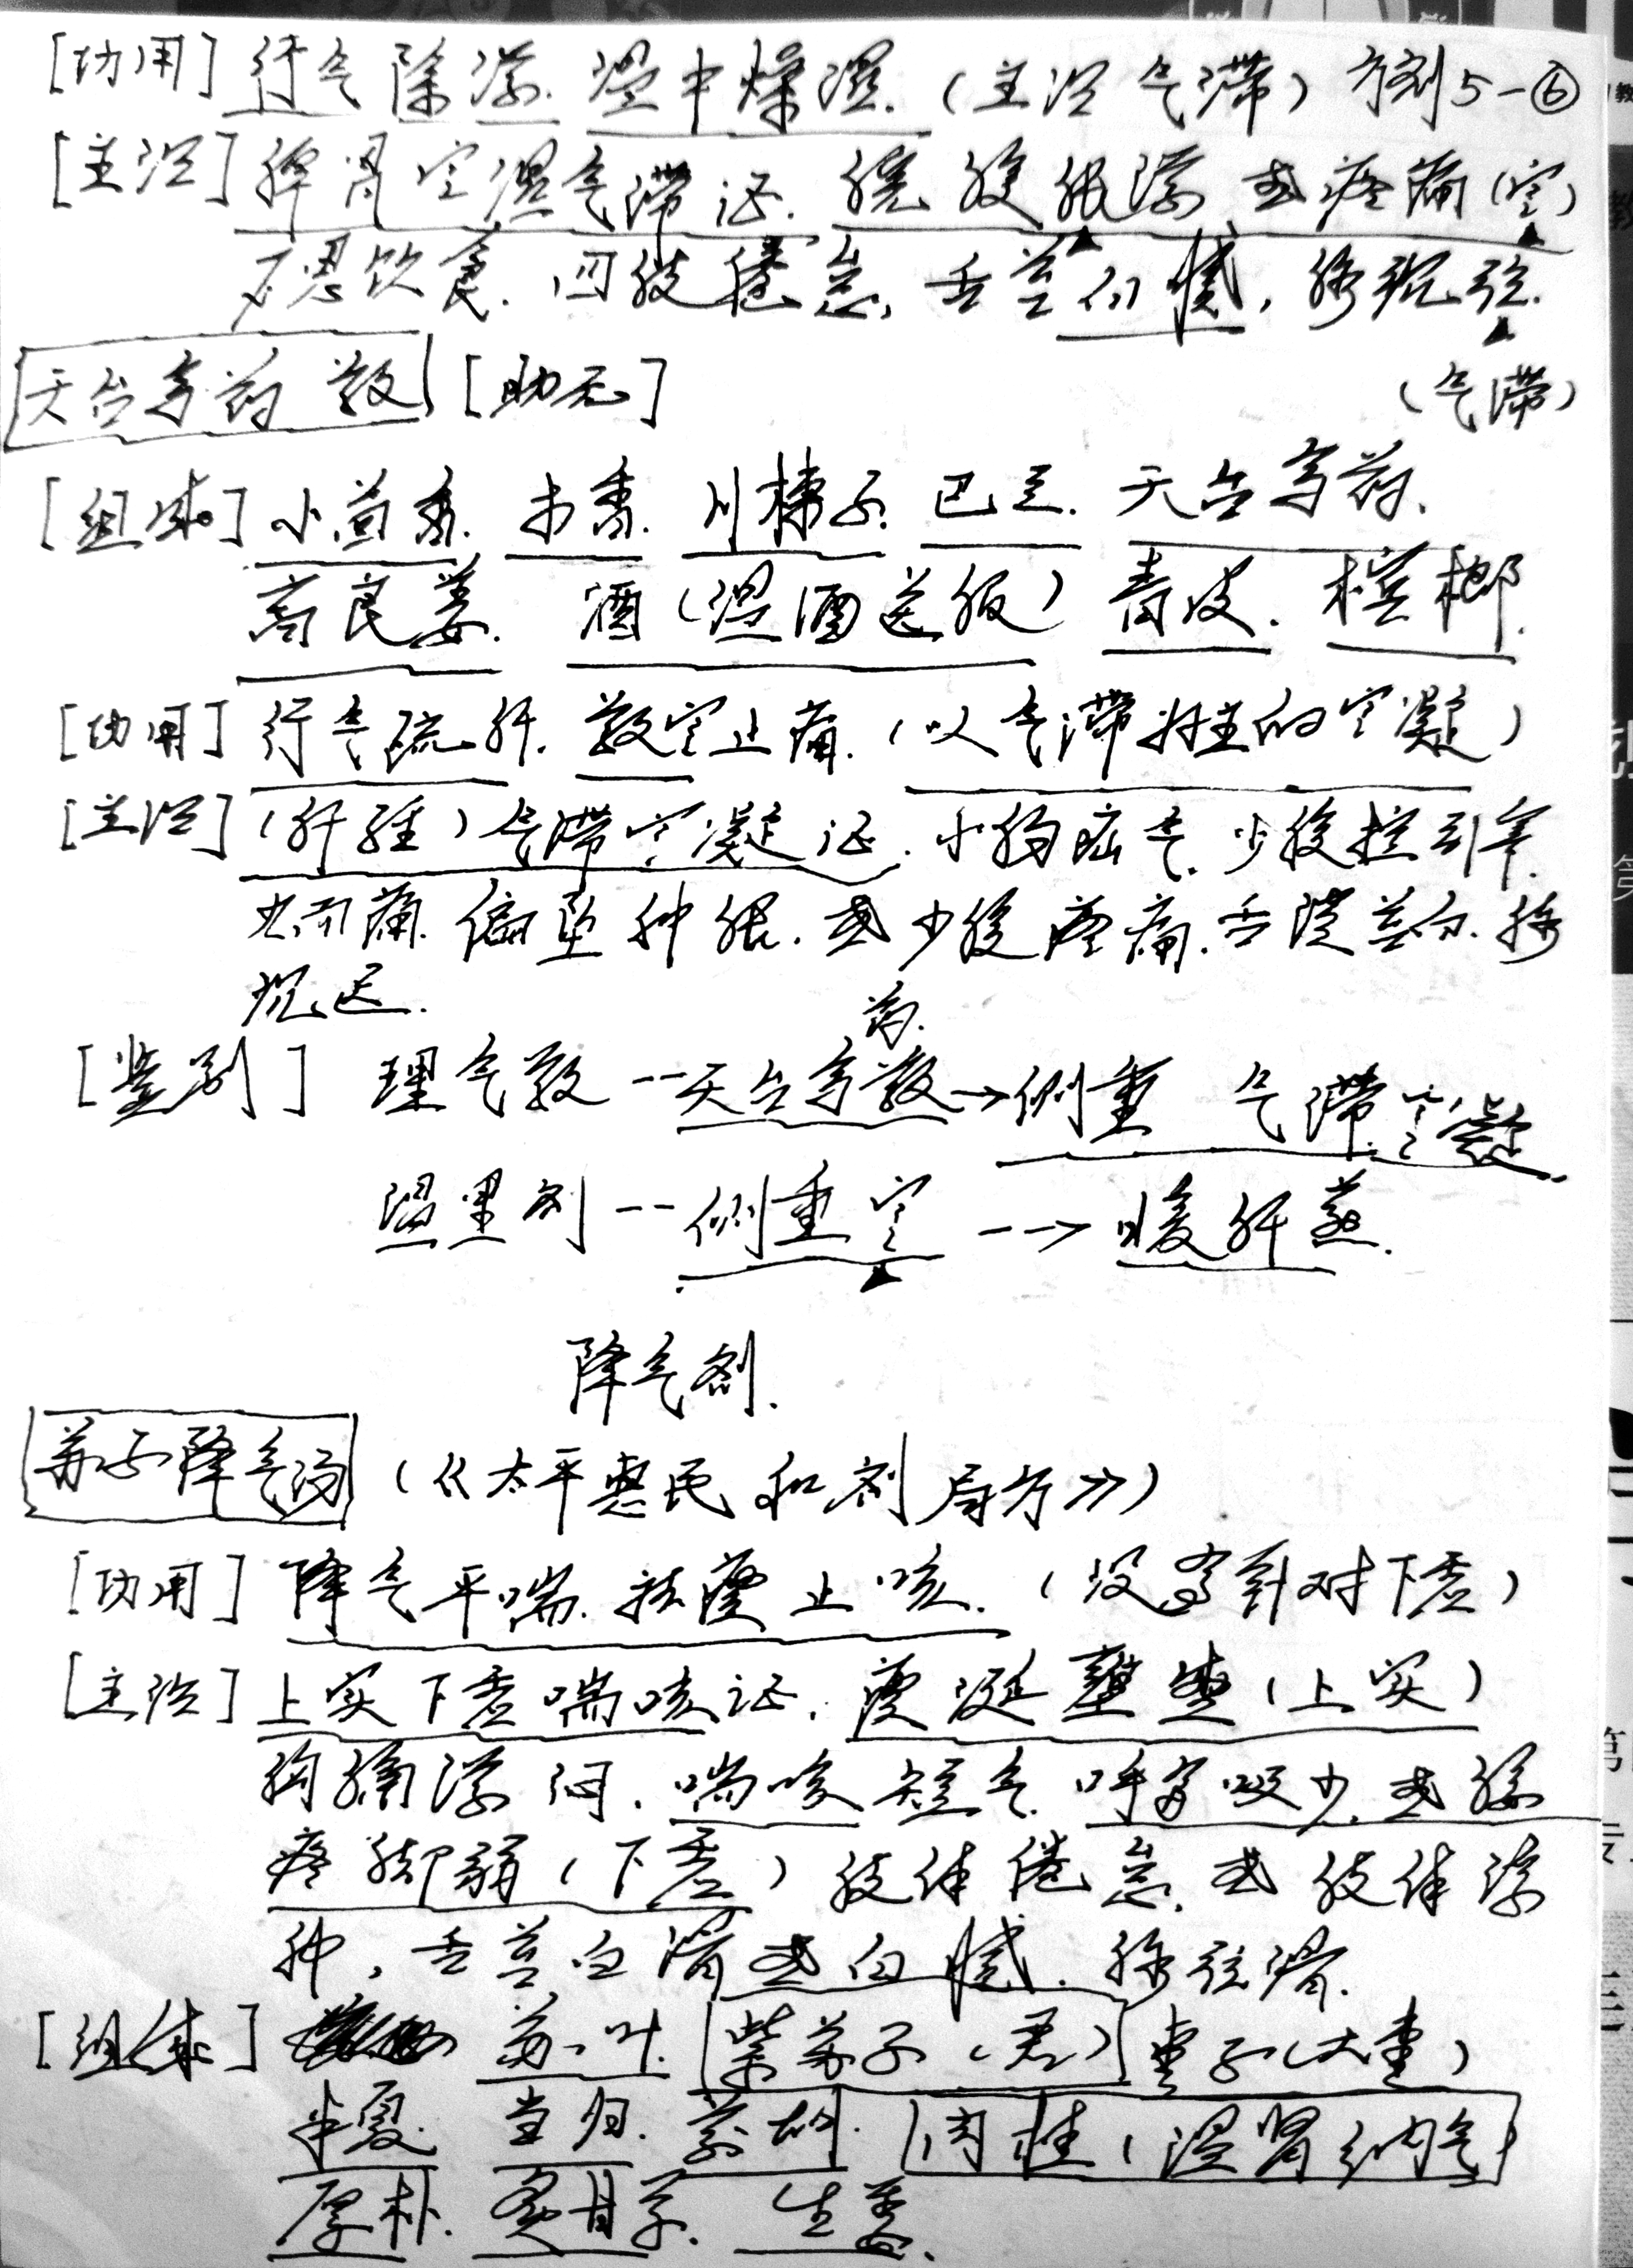 [功用] 行气除满. 温中燥湿. (主治气滞) 方剂5-⑥
[主治] 脾胃寒湿气滞证. 脘腹胀满或疼痛(寒)
不思饮食. 四肢倦怠, 舌苔白腻, 脉沉弦.
(气滞)
天台乌药散 [助记]
[组成] 小茴香. 木香. 川楝子. 巴豆. 天台乌药.
高良姜. 酒(温酒送服) 青皮. 槟榔.
[功用] 行气疏肝. 散寒止痛. (以气滞为主的寒凝)
[主治] (肝经)气滞寒凝证. 小肠疝气. 少腹控引睾
丸而痛. 偏坠肿胀. 或少腹疼痛. 舌淡苔白. 脉
沉迟.
[鉴别] 理气散--天台乌药散→侧重 气滞寒凝.
温里剂--侧重寒-→暖肝煎.
降气剂.
苏子降气汤 (《太平惠民和剂局方》)
[功用] 降气平喘. 祛痰止咳. (没有针对下虚)
[主治] 上实下虚喘咳证. 痰涎壅盛(上实)
胸膈满闷. 喘咳短气. 呼多吸少. 或腰
疼脚弱(下虚) 肢体倦怠. 或肢体浮
肿, 舌苔白滑或白腻. 脉弦滑.
[组成] 苏叶. 紫苏子(君) 枣子(大枣)
半夏. 当归. 前胡. 肉桂(温肾纳气
厚朴. 炙甘草. 生姜.